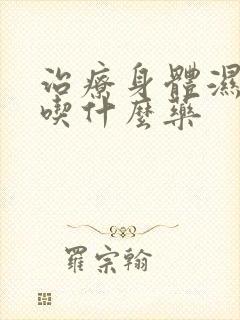 治療身體濕
喫什麼藥
羅宗翰